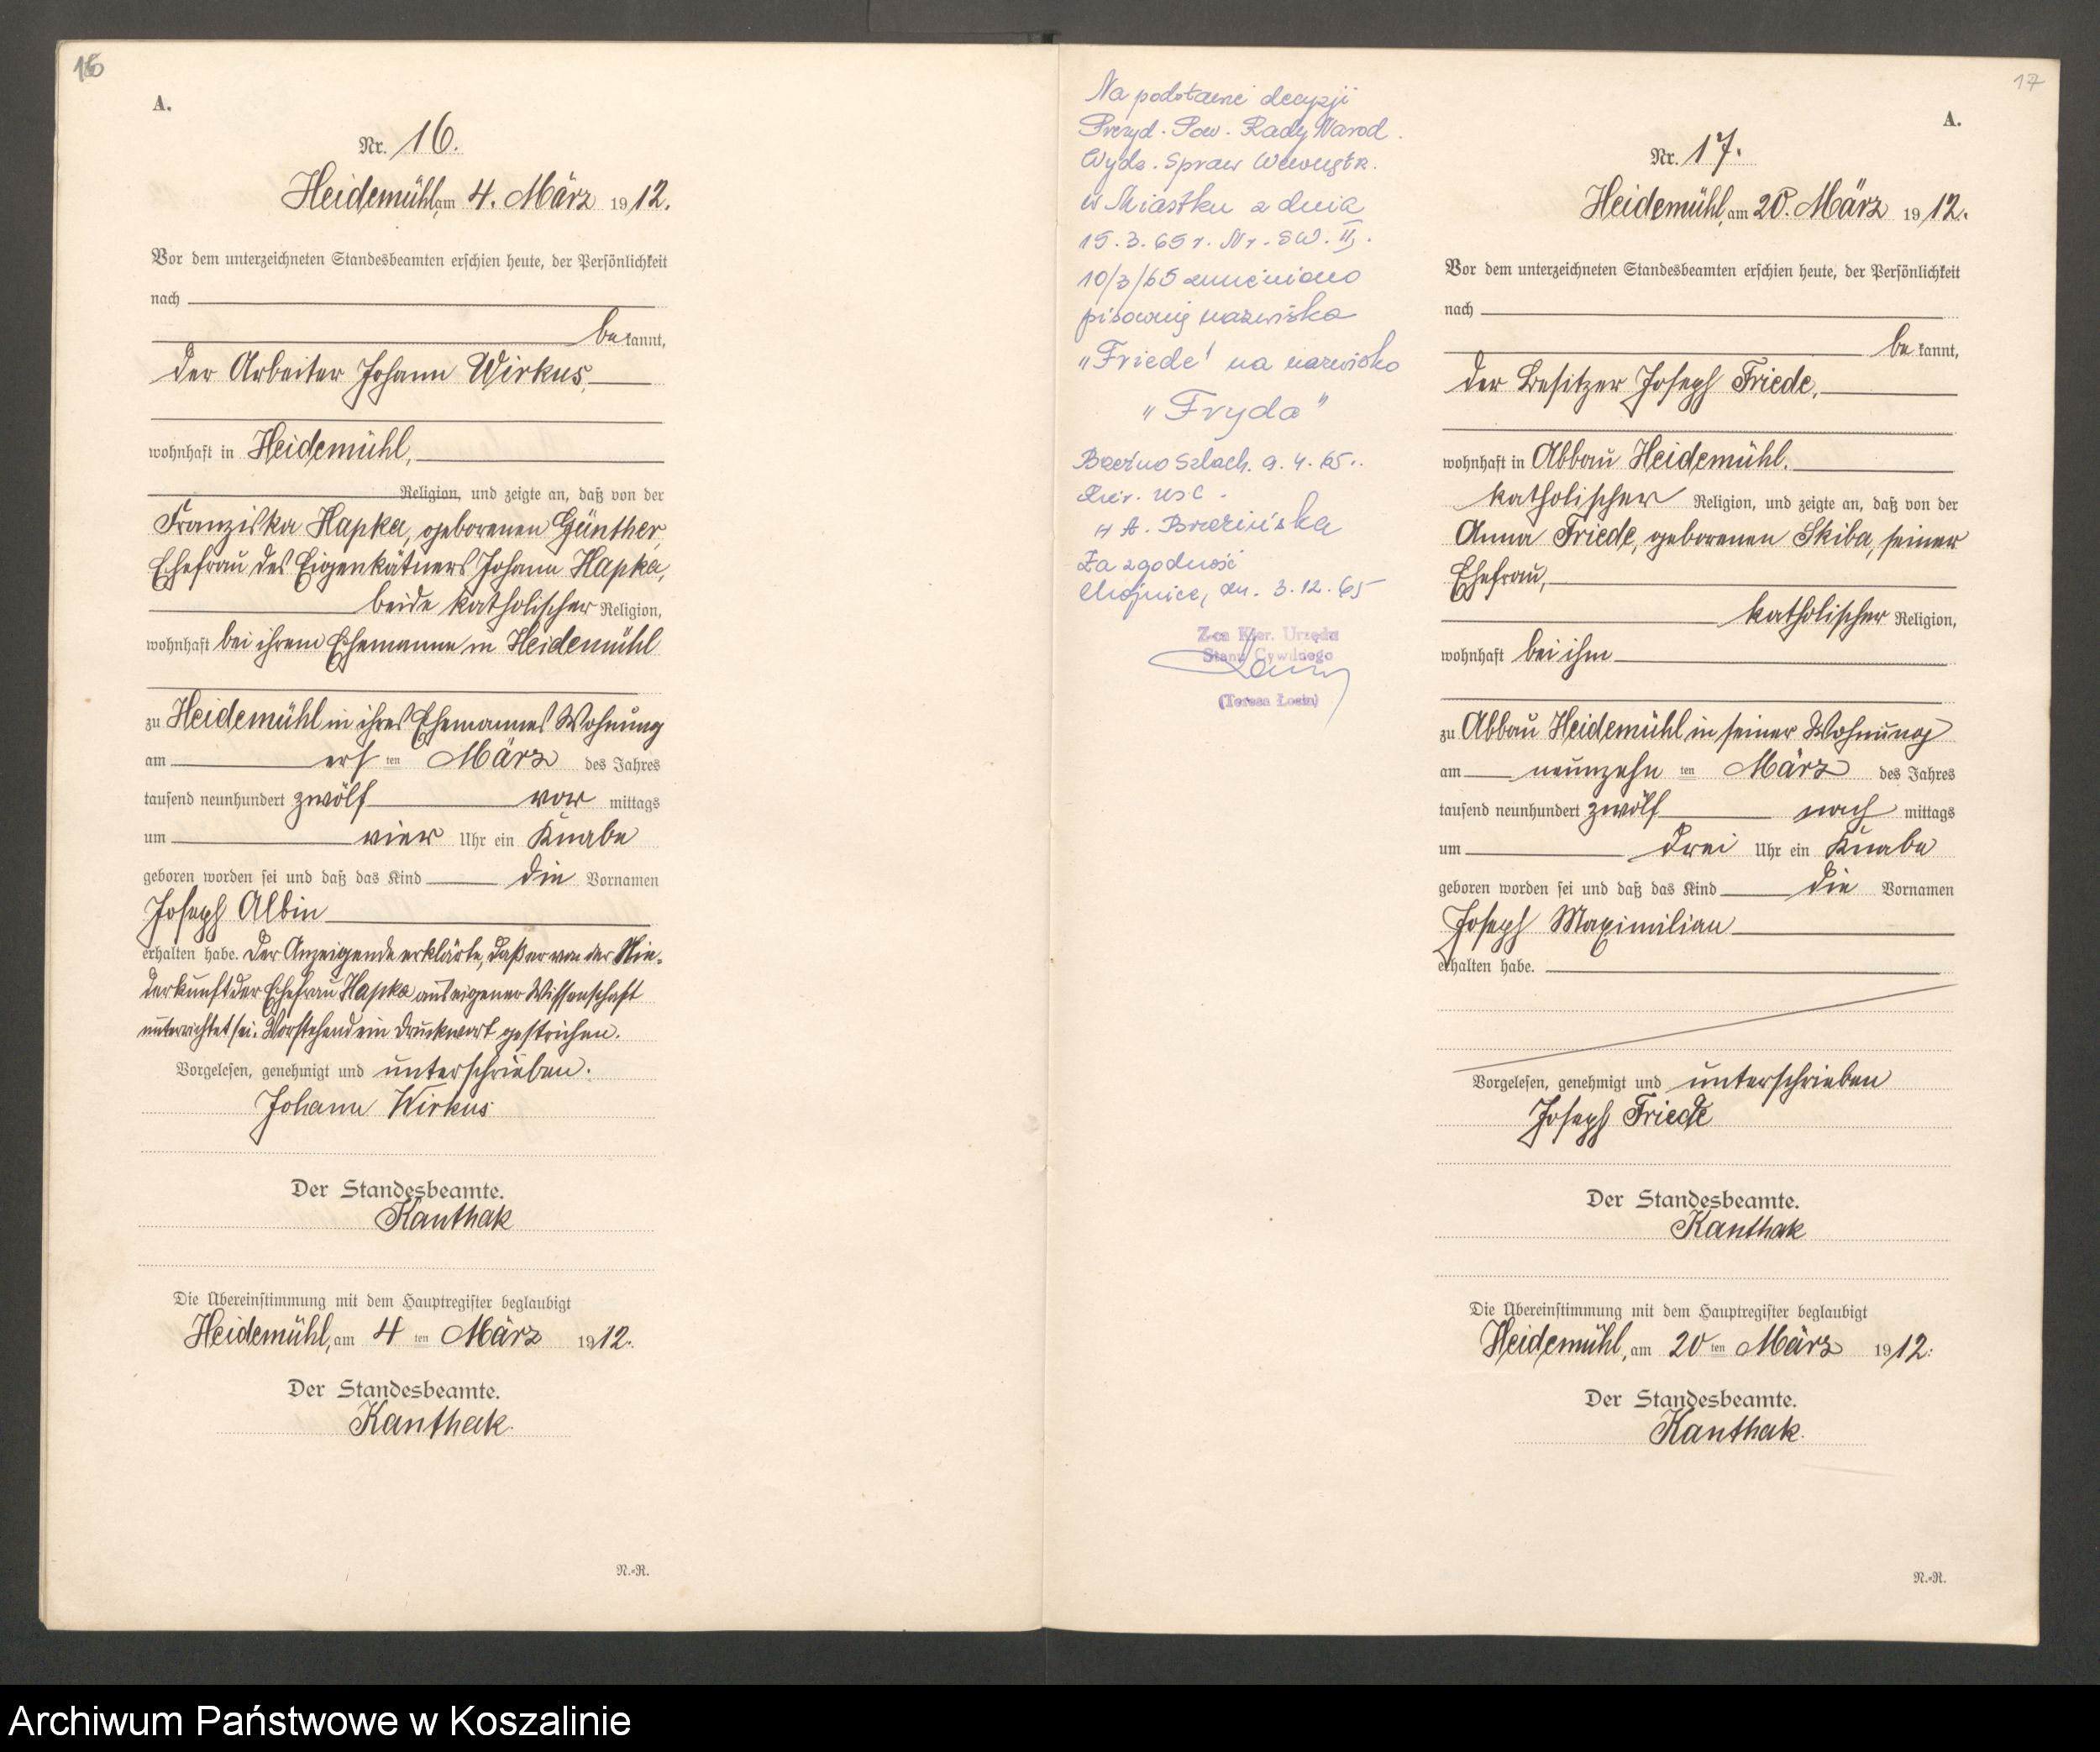 16
A.
Nr. 16.
Heidemühl, am 4. März 1912.
Vor dem unterzeichneten Standesbeamten erschien heute, der Persönlichkeit
nach
be kannt,
der Arbeiter Johann Wirkus,
wohnhaft in Heidemühl,
Religion, und zeigte an, daß von der
Franziska Hapka, geborenen Günther,
Ehefrau des Eigenkätners Johann Hapka,
beide katholischer Religion,
wohnhaft bei ihrem Ehemanne in Heidemühl
zu Heidemühl in ihres Ehemannes Wohnung
am ersten März des Jahres
tausend neunhundert zwölf vor mittags
um vier Uhr ein Knabe
geboren worden sei und daß das Kind die Vornamen
Joseph Albin
erhalten habe. Der Anzeigende erklärte, daß er von der Nie-
derkunft der Ehefrau Hapka aus eigener Wissenschaft
unterrichtet sei. Vorstehend ein Druckwort gestrichen.
Vorgelesen, genehmigt und unterschrieben.
Johann Wirkus
Der Standesbeamte.
Kanthak
Die Übereinstimmung mit dem Hauptregister beglaubigt
Heidemühl, am 4 ten März 1912.
Der Standesbeamte.
Kanthak.
N.-R.
Na podstawie decyzji
Prezyd. Pow. Rady Narod.
Wydz. Spraw Wewnętrz.
w Miastku z dnia
15.3.65 r. Nr. SW. II.
10/3/65 zmieniono
pisownię nazwiska
„Friede" na nazwisko
„Fryda"
Brzeźno Szlach. 9.4.65..
Kier. USC.
A. Brzezińska
Za zgodność
Chojnice, dn. 3.12.65
Z-ca Kier. Urzędu
Stanu Cywilnego
(Teresa Łosin)
17
A.
Nr. 17.
Heidemühl, am 20. März 1912.
Vor dem unterzeichneten Standesbeamten erschien heute, der Persönlichkeit
nach
be kannt,
der Besitzer Joseph Friede,
wohnhaft in Abbau Heidemühl.
katholischer Religion, und zeigte an, daß von der
Anna Friede, geborenen Skiba, seiner
Ehefrau,
katholischer Religion,
wohnhaft bei ihm
zu Abbau Heidemühl in seiner Wohnung
am neunzehn ten März des Jahres
tausend neunhundert zwölf nach mittags
um drei Uhr ein Knabe
geboren worden sei und daß das Kind die Vornamen
Joseph Maximilian
erhalten habe.
Vorgelesen, genehmigt und unterschrieben
Joseph Friede
Der Standesbeamte.
Kanthak
Die Übereinstimmung mit dem Hauptregister beglaubigt
Heidemühl, am 20 ten März 1912.
Der Standesbeamte.
Kanthak.
N.-R.
Archiwum Państwowe w Koszalinie